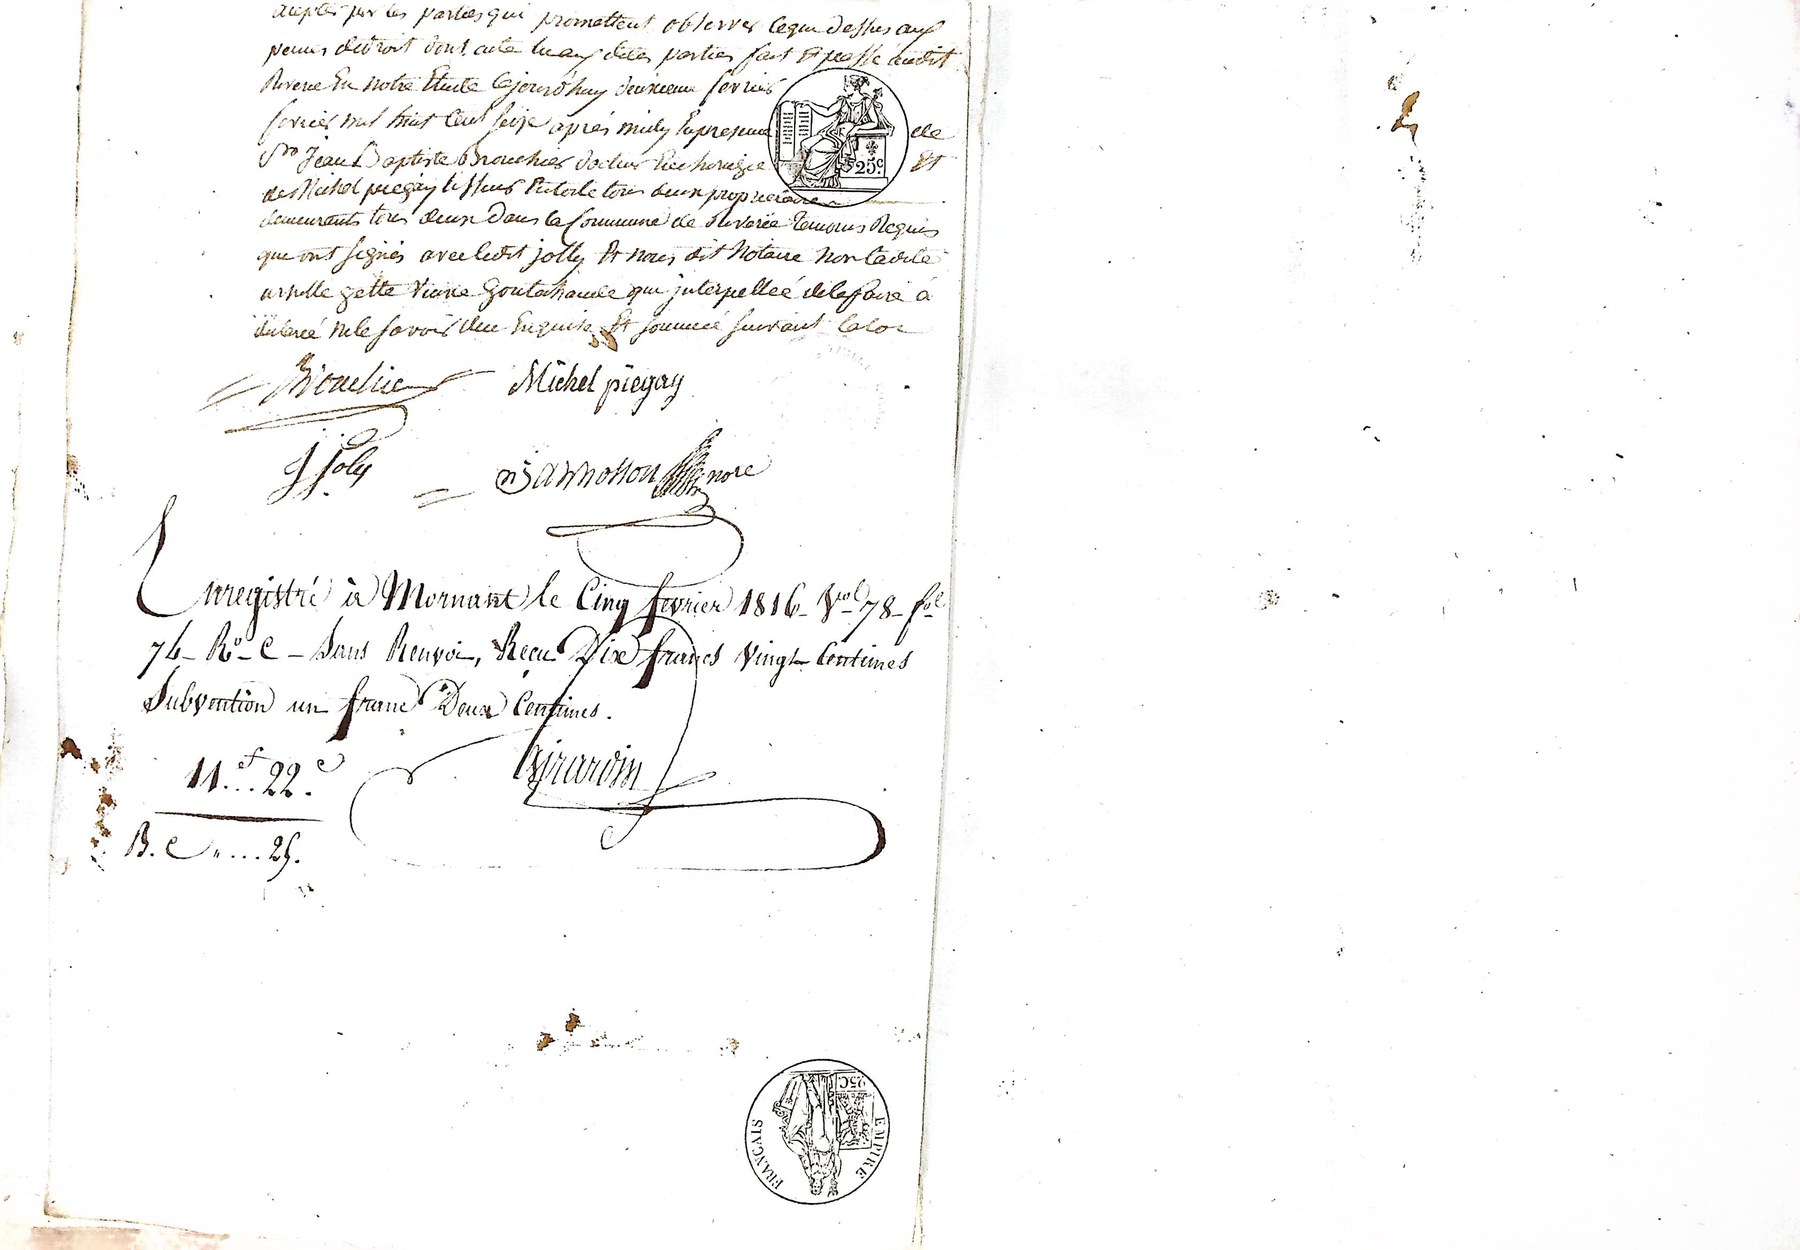 par les parties qui promettent observer ce que dessus aux
peines de droit dont acte lu aux dites parties fait et passé audit
Riverie En notre Etude cejourd'huy deuxieme fevrier
fevrier mil huit cent seize après midy En presence de
Sr Jean Baptiste Brouchier docteur En chirurgie Et
de Michel piegay tous deux proprietaires
demeurants tous deux Dans la Commune de Riverie temoins Requis
que ont signés avec ledit jolly Et nous dit Notaire non ladite
gette Goutahaude qui interpellée de le faire a
declaré ne le savoir due Enquise Et sommée suivant la loi
25c.
Brouchier Michel piegay
J Joly nore
Enregistré à Mornant le Cinq fevrier 1816 Vol 78 fol
76 Ro C Sans Renvoi, Reçu Dix francs Vingt Centimes
Subvention un franc Deux Centimes.
11.f 22.c
Girardin
B. C „ .... 25.
25C
EMPIRE FRANÇAIS